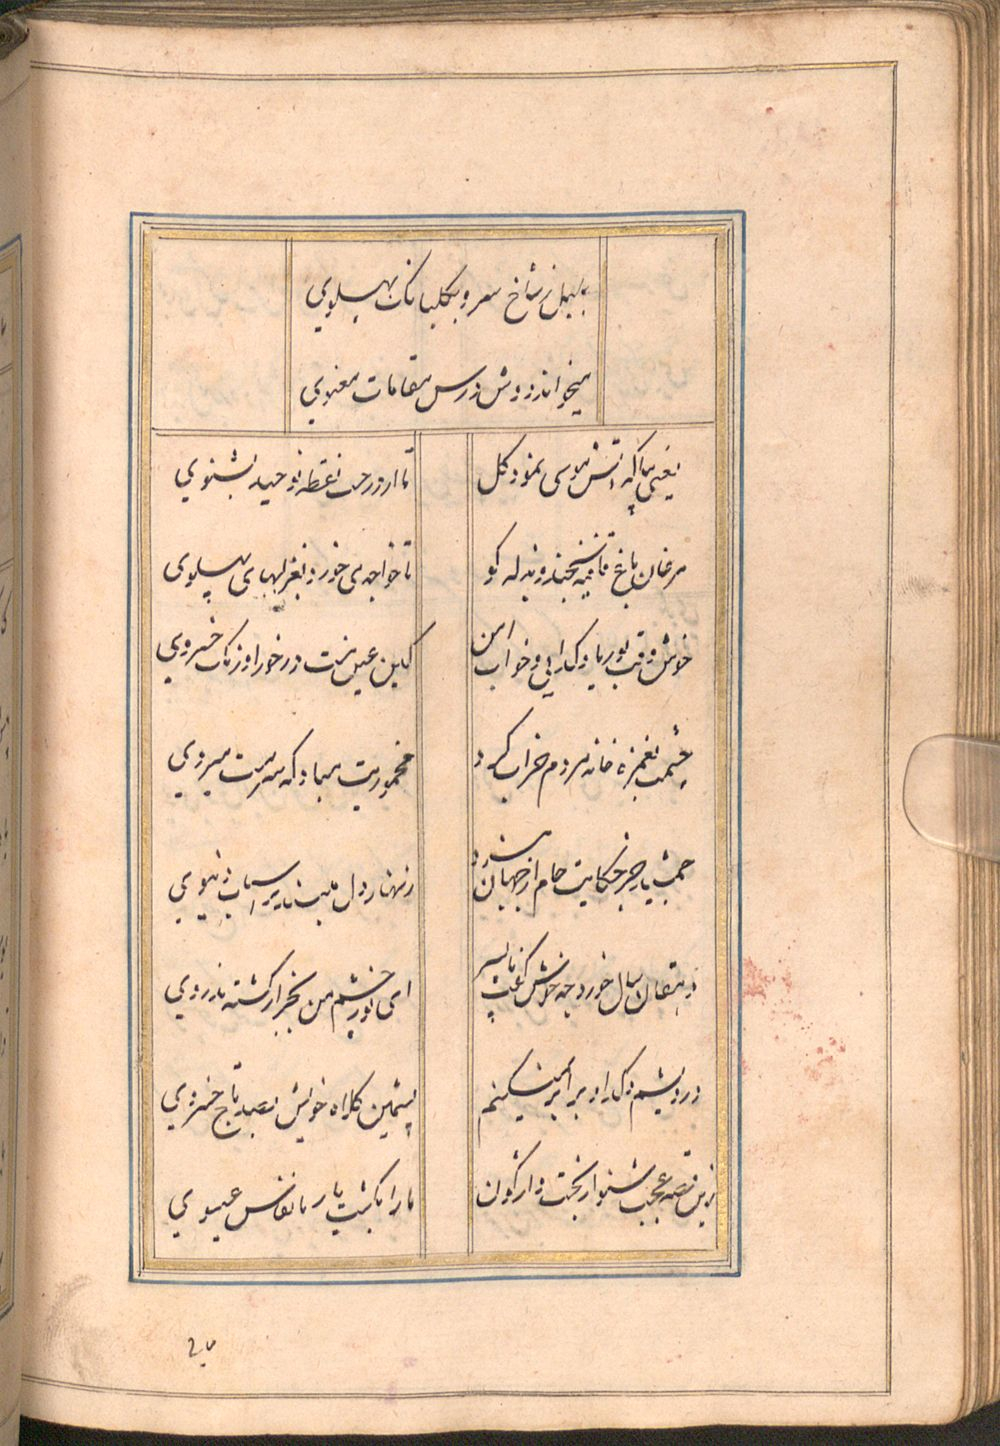 بلبل ز شاخ سرو بگلبانک پهلوی
میخواند دوش درس مقامات معنوی
یعنی بیا که آتش موسی نمود کل
تا از درخت نقطه توحید بشنوی
مرغان باغ قافیه سنجند و بذله کو
تا خواجه می خورد بغزلهای پهلوی
خوش وقت بوریا و کدایی و خواب امن
کاین عیش نیست در خور اورنک خسروی
چشمت بغمزه خانه مردم خراب کرد
مخموریت مباد که سرمست میروی
جمشید جز حکایت جام از جهان نبرد
زنهار دل مبند بر اسباب دنیوی
دهقان سال خورده چه خوش کفت با پسر
ای نور چشم من بجز از کشته ندروی
درویشم و کدا و برابر نمیکنم
پشمین کلاه خویش بصد تاج خسروی
این قصه عجب شنو از بخت واژکون
ما را بکشت یار بانفاس عیسوی